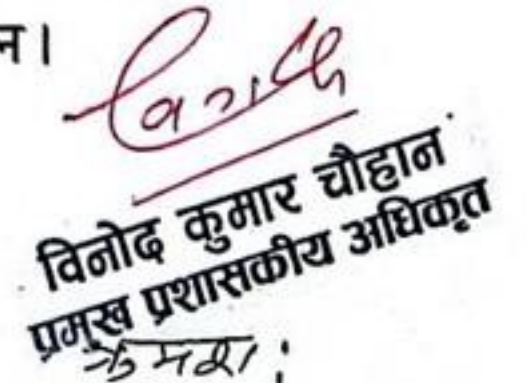 न।
विनोद कुमार चौहान
प्रमुख प्रशासकीय अधिकृत
क्रमशः